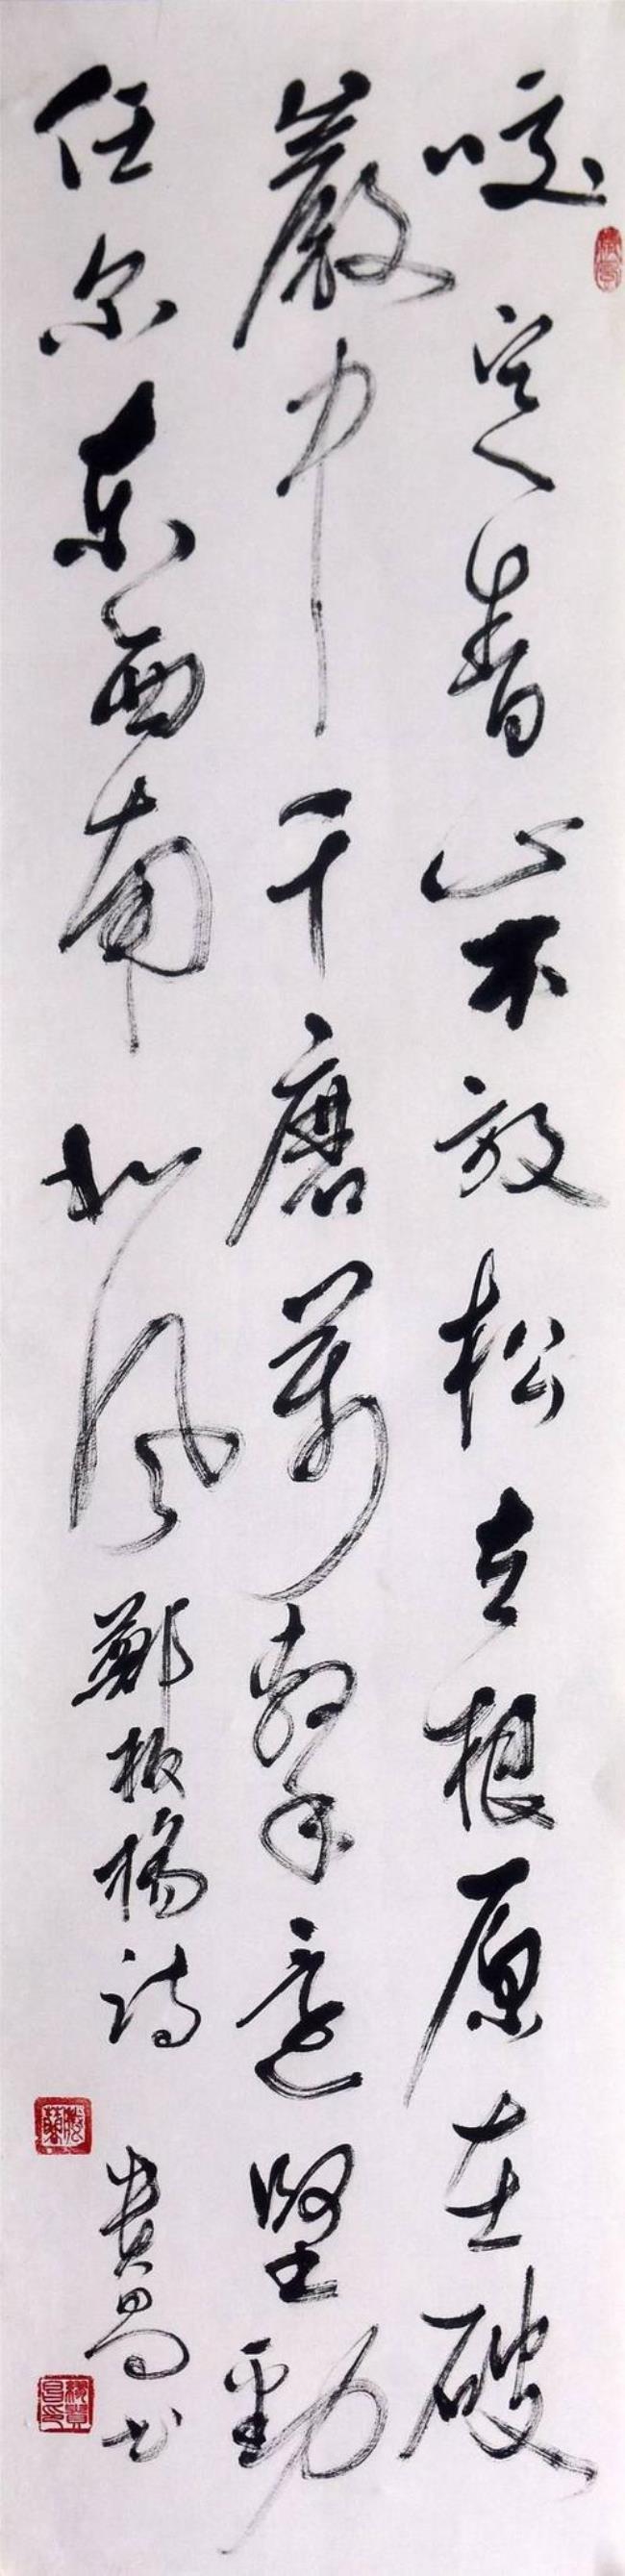 咬定青山不放松立根原在破
巖中千磨萬擊還堅勁
任尔東西南北風 鄭板橋詩 貴昌书